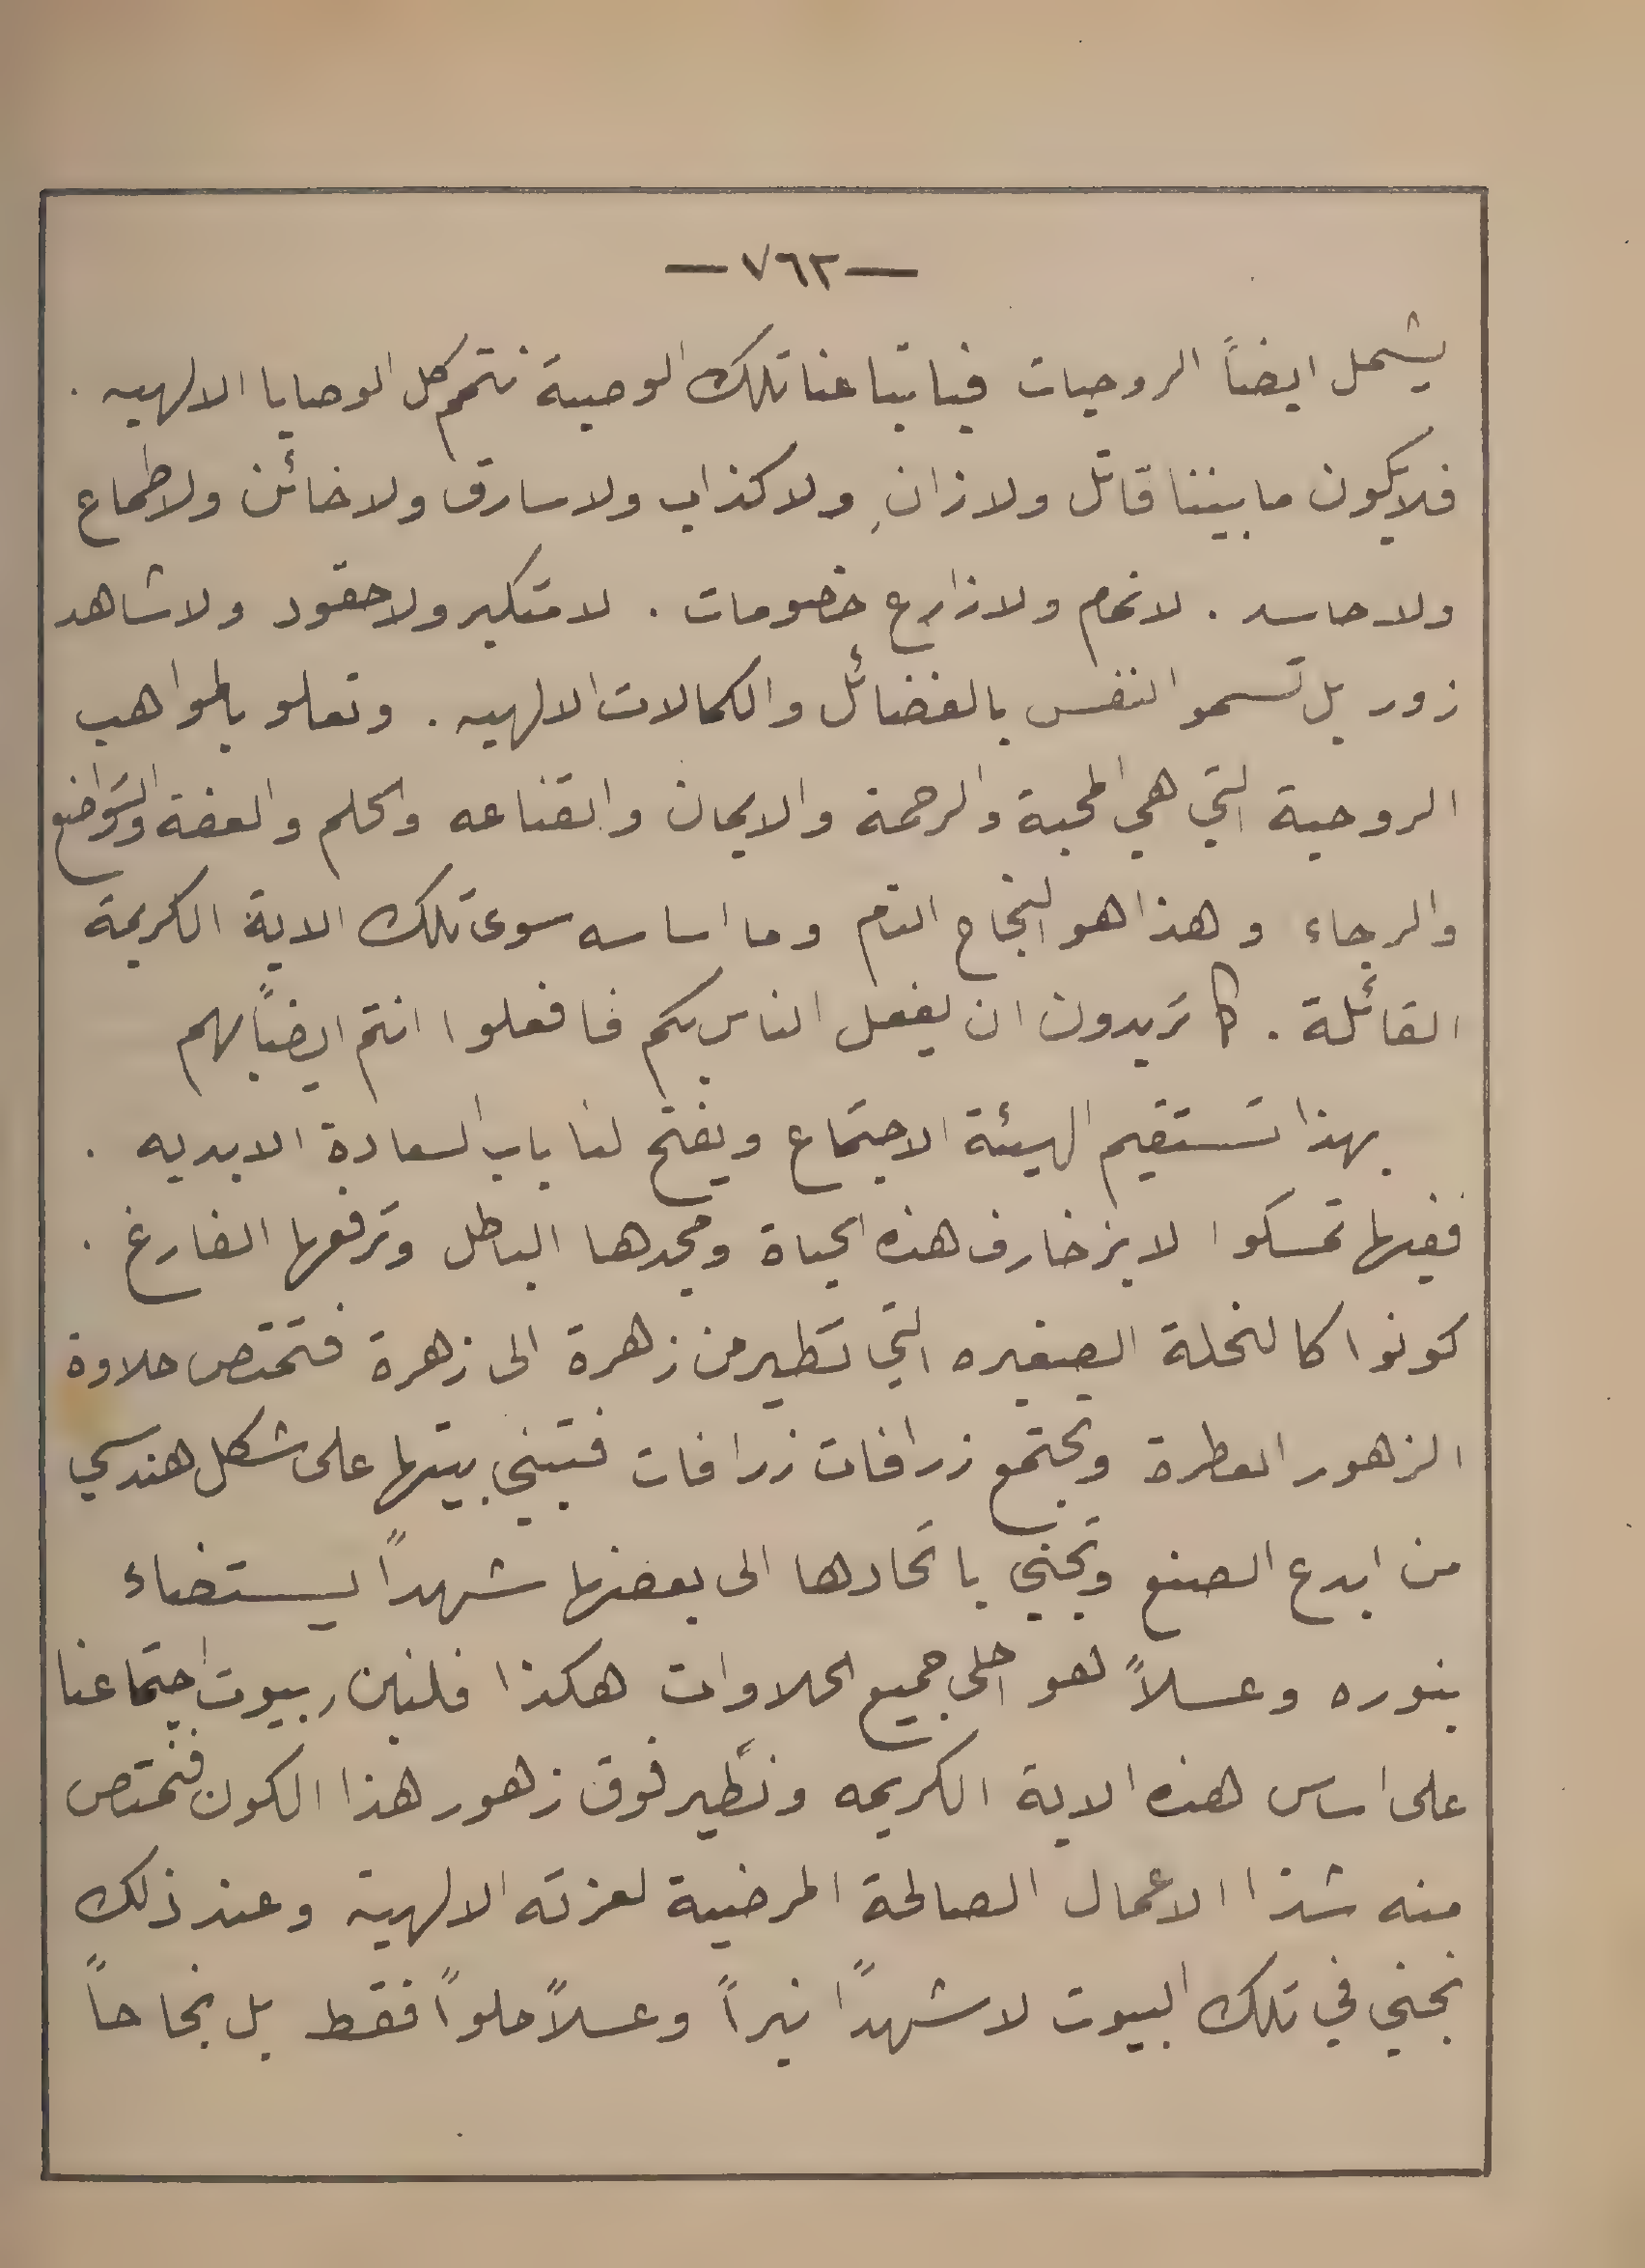 — ٧٦٢ —
يشمل ايضاً الروحيات فباتباعنا تلك الوصية نتمم كل الوصايا الالهيه .
فلا يكون ما بيننا قاتل ولا زانٍ ولا كذاب ولا سارق ولا خائن ولا طماع
ولا حاسد . لا نمام ولا زارع خصومات . لا متكبر ولا حقود ولا شاهد
زور بل تسمو النفس بالفضائل والكمالات الالهيه . وتعلو بالمواهب
الروحية التي هي المحبة والرحمة والايمان والقناعه والحلم والعفة والتواضع
والرجاء وهذا هو النجاح التام وما اساسه سوى تلك الاية الكريمة
القائلة . كما تريدون ان يفعل الناس بكم فافعلوا انتم ايضاً بهم
بهذا تستقيم الهيئة الاجتماع ويفتح لنا باب السعادة الابديه .
ففيها تمسكوا لا بزخارف هذه الحياة ومجدها الباطل وترفعها الفارغ .
كونوا كالنحلة الصغيره التي تطير من زهرة الى زهرة فتمتص حلاوة
الزهور العطرة وتجتمع زرافات زرافات فتبني بيتها على شكل هندسي
من ابدع الصنع وتجني باتحادها الى بعضها شهداً يستضاء
بنوره وعسلاً هو احلى جميع الحلاوات هكذا فلنبن بيوت اجتماعنا
على اساس هذه الاية الكريمه ونطير فوق زهور هذا الكون فنمتص
منه شذا الاعمال الصالحة المرضية لعزته الالهية وعند ذلك
نجني في تلك البيوت لا شهداً نيراً وعسلاً حلواً فقط بل نجاحاً